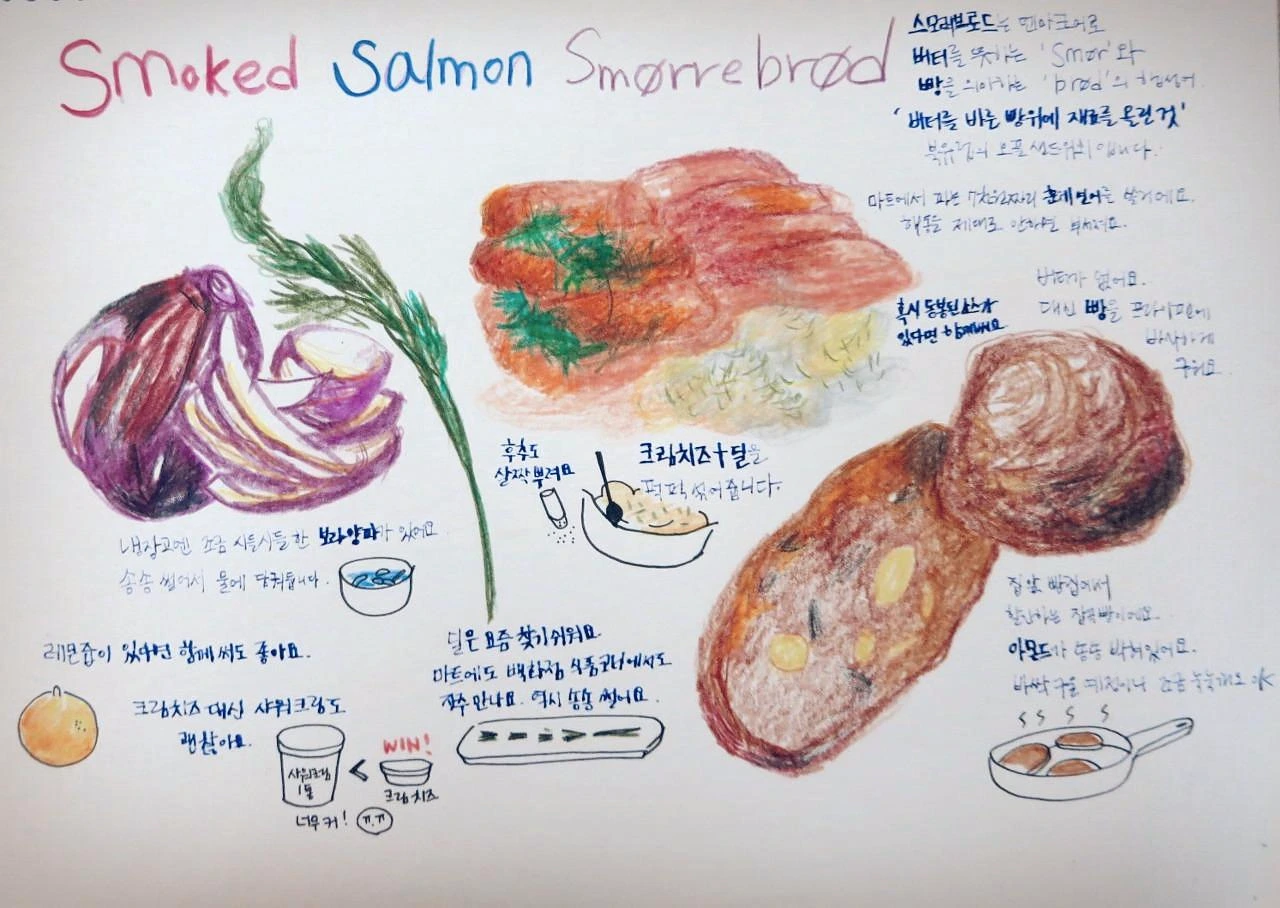 Smoked Salmon Smørrebrød
스모레브로드는 덴마크어로
버터를 뜻하는 'Smør'와
빵을 의미하는 'brød'의 합성어.
'버터를 바른 빵위에 재료를 올린 것'
북유럽의 오픈 샌드위치 입니다.
마트에서 파는 7천원짜리 훈제연어를 쓸거예요.
해동을 제대로 안하면 부서져요.
버터가 없어요.
대신 빵을 프라이팬에
바삭하게
구워요.
혹시 동봉된 소스가
있다면 함께해요
후추도
살짝 뿌려요
크림치즈+딜을
퍽퍽 섞어줍니다.
냉장고엔 조금 시들시들한 보라양파가 있어요
송송 썰어서 물에 담궈둡니다.
레몬즙이 있다면 함께 써도 좋아요.
크림치즈 대신 샤워크림도
괜찮아요.
샤워크림
1통
<
WIN!
크림치즈
너무 커!
ㅠ.ㅠ
딜은 요즘 찾기 쉬워요.
마트에도 백화점 식품코너에서도
자주 만나요. 역시 송송 썰어요.
집 앞 빵집에서
할인하는 잡곡빵이에요.
아몬드가 송송 박혀있어요.
바싹 구울 예정이니 조금 눅눅해도 OK